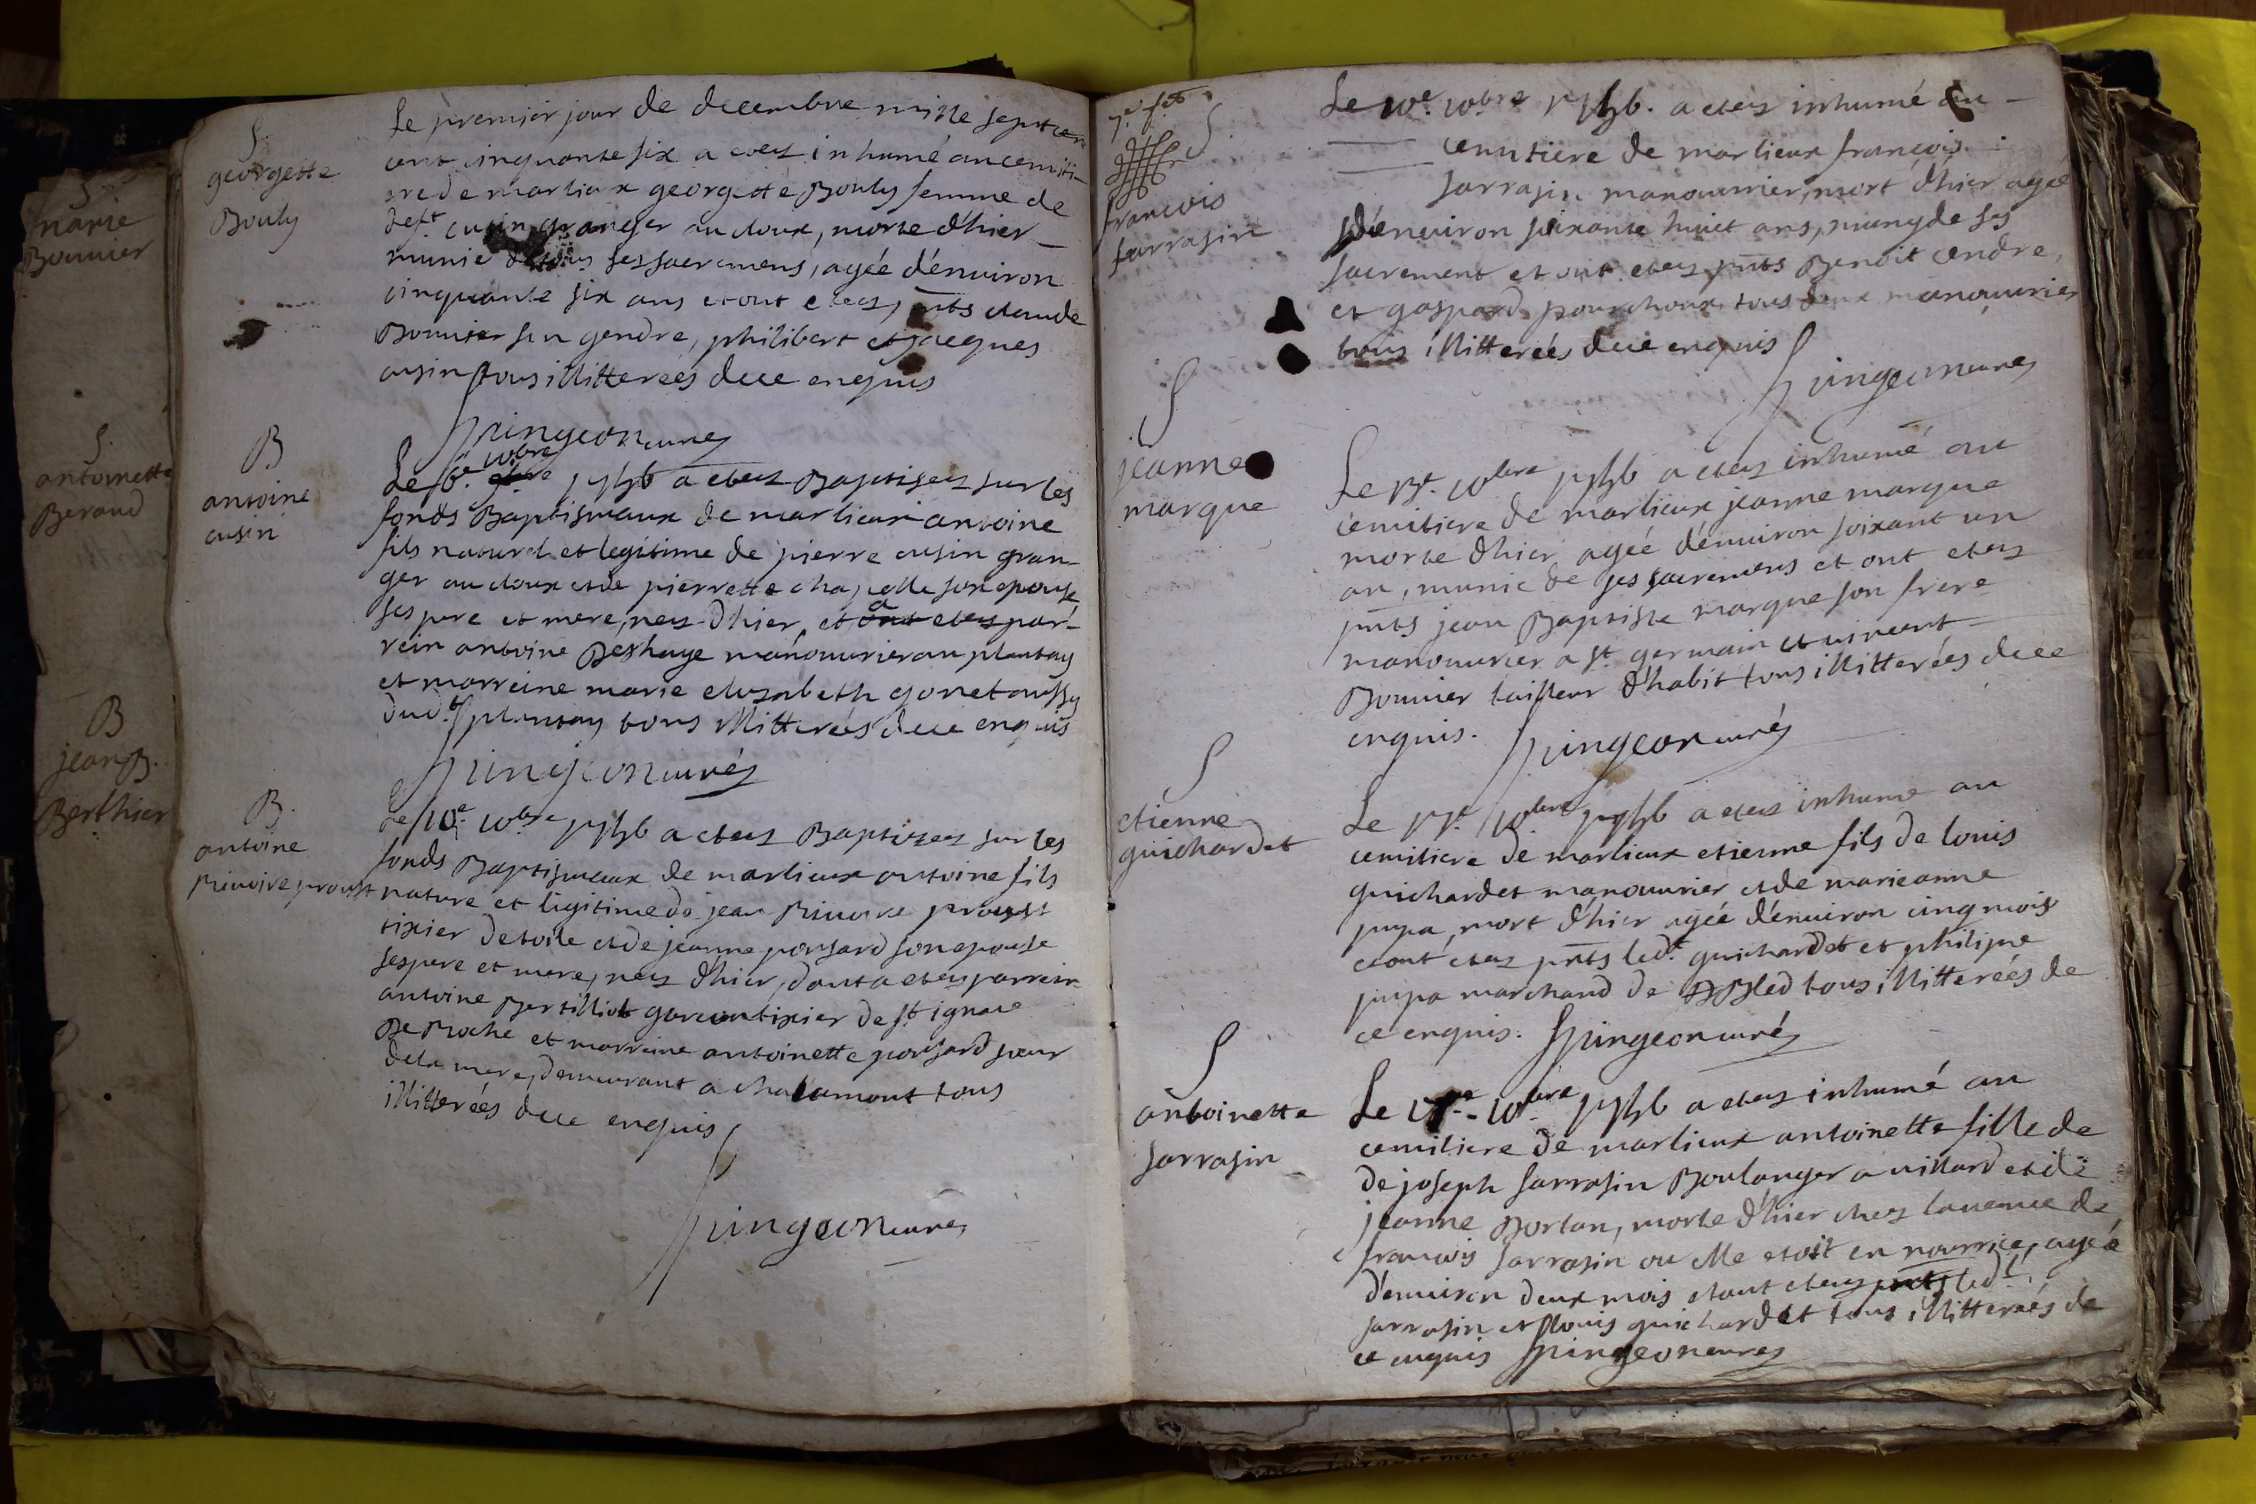 S.
marie
Bouvier
S.
antoinette
Beraud
B
jean B.
Berthier
S.
georgette
Bouly
Le premier jour de decembre mille sept cen
cent cinquante six a etez inhumé au cemiti-
ere de marlieux georgette Bouly femme de
deft. cusin granger au cloux, morte d'hier
munie de tous ses sacremens, agée d'énuiron
cinquante six ans et ont etez pnts claude
Bouvier son gendre, philibert et jacques
cusin tous illitterées de ce enquis
Spingeon curez
B
antoine
cusin
Le 6e. 10bre 1756 a etez Baptisez sur les
fonds Baptismaux de marlieux antoine
fils naturel et legitime de pierre cusin gran-
ger au cloux et de pierrette chapelle son epouse
ses pere et mere, nez d'hier, et a etez par-
rein antoine Deshaye manouurier au plantay
et marreine marie elizabeth gonet aussy
dudt. plantay tous illitterées de ce enquis
Spingeon curéz
B.
antoine
Riuoire proust
Le 10e. 10bre 1756 a etez Baptizez sur les
fonds Baptismaux de marlieux antoine fils
nature et ligitime de jean Riuoire proust
tixier detoile et de jeanne ponsard son epouse
ses pere et mere, nez d'hier, dont a etez parrein
antoine Bertilliot garcon tixier de st. ignace
De Roche et marreine antoinette ponsard soeur
de la mere, demeurant a chalamont tous
illitterées de ce enquis
Spingeon curez
S
francois
sarrasin
Le 10e. 10bre 1756. a etez inhumé au
cemitiere de marlieux francois
sarrasin manouurier, mort d'hier agée
d'énuiron soixante huit ans, muny de ses
sacrement et ont etez pnts Benoit cendre,
et gaspard pourchoux tous deux manouurier
tous illitterées de ce enquis
Spingeon curez
S
jeanne
marque
Le 13e. 10bre 1756 a etez inhumé au
cemitiere de marlieux jeanne marque
morte d'hier agée d'énuiron soixant un
an, munie de ses sacremens et ont etez
pnts jean Baptiste marque son frere
manouurier a st. germain et vincent
Bouvier tailleur d'habit tous illitterées de ce
enquis. Spingeon curéz
S
etienne
guichardet
Le 15e. 10bre 1756 a etez inhumé au
cemitiere de marlieux etienne fils de louis
guichardet manouurier et de marieanne
pupa, mort d'hier agée d'énuiron cinq mois
et ont etez pnts ledt. guichardet et philipe
pupa marchand de Bled tous illitterées de
ce enquis. Spingeon curéz
S
antoinette
sarrasin
Le 10bre 1756 a etez inhumé au
cemitiere de marlieux antoinette fille de
de joseph sarrasin Boulanger a villard et de
jeanne Borlan, morte d'hier chez la ueuue de
francois sarrasin ou elle etoit en nourrice, agée
d'énuiron deux mois et ont etez pnts ledt.
sarrasin et louis guichardet tous illitterées de
ce enquis Spingeon curez